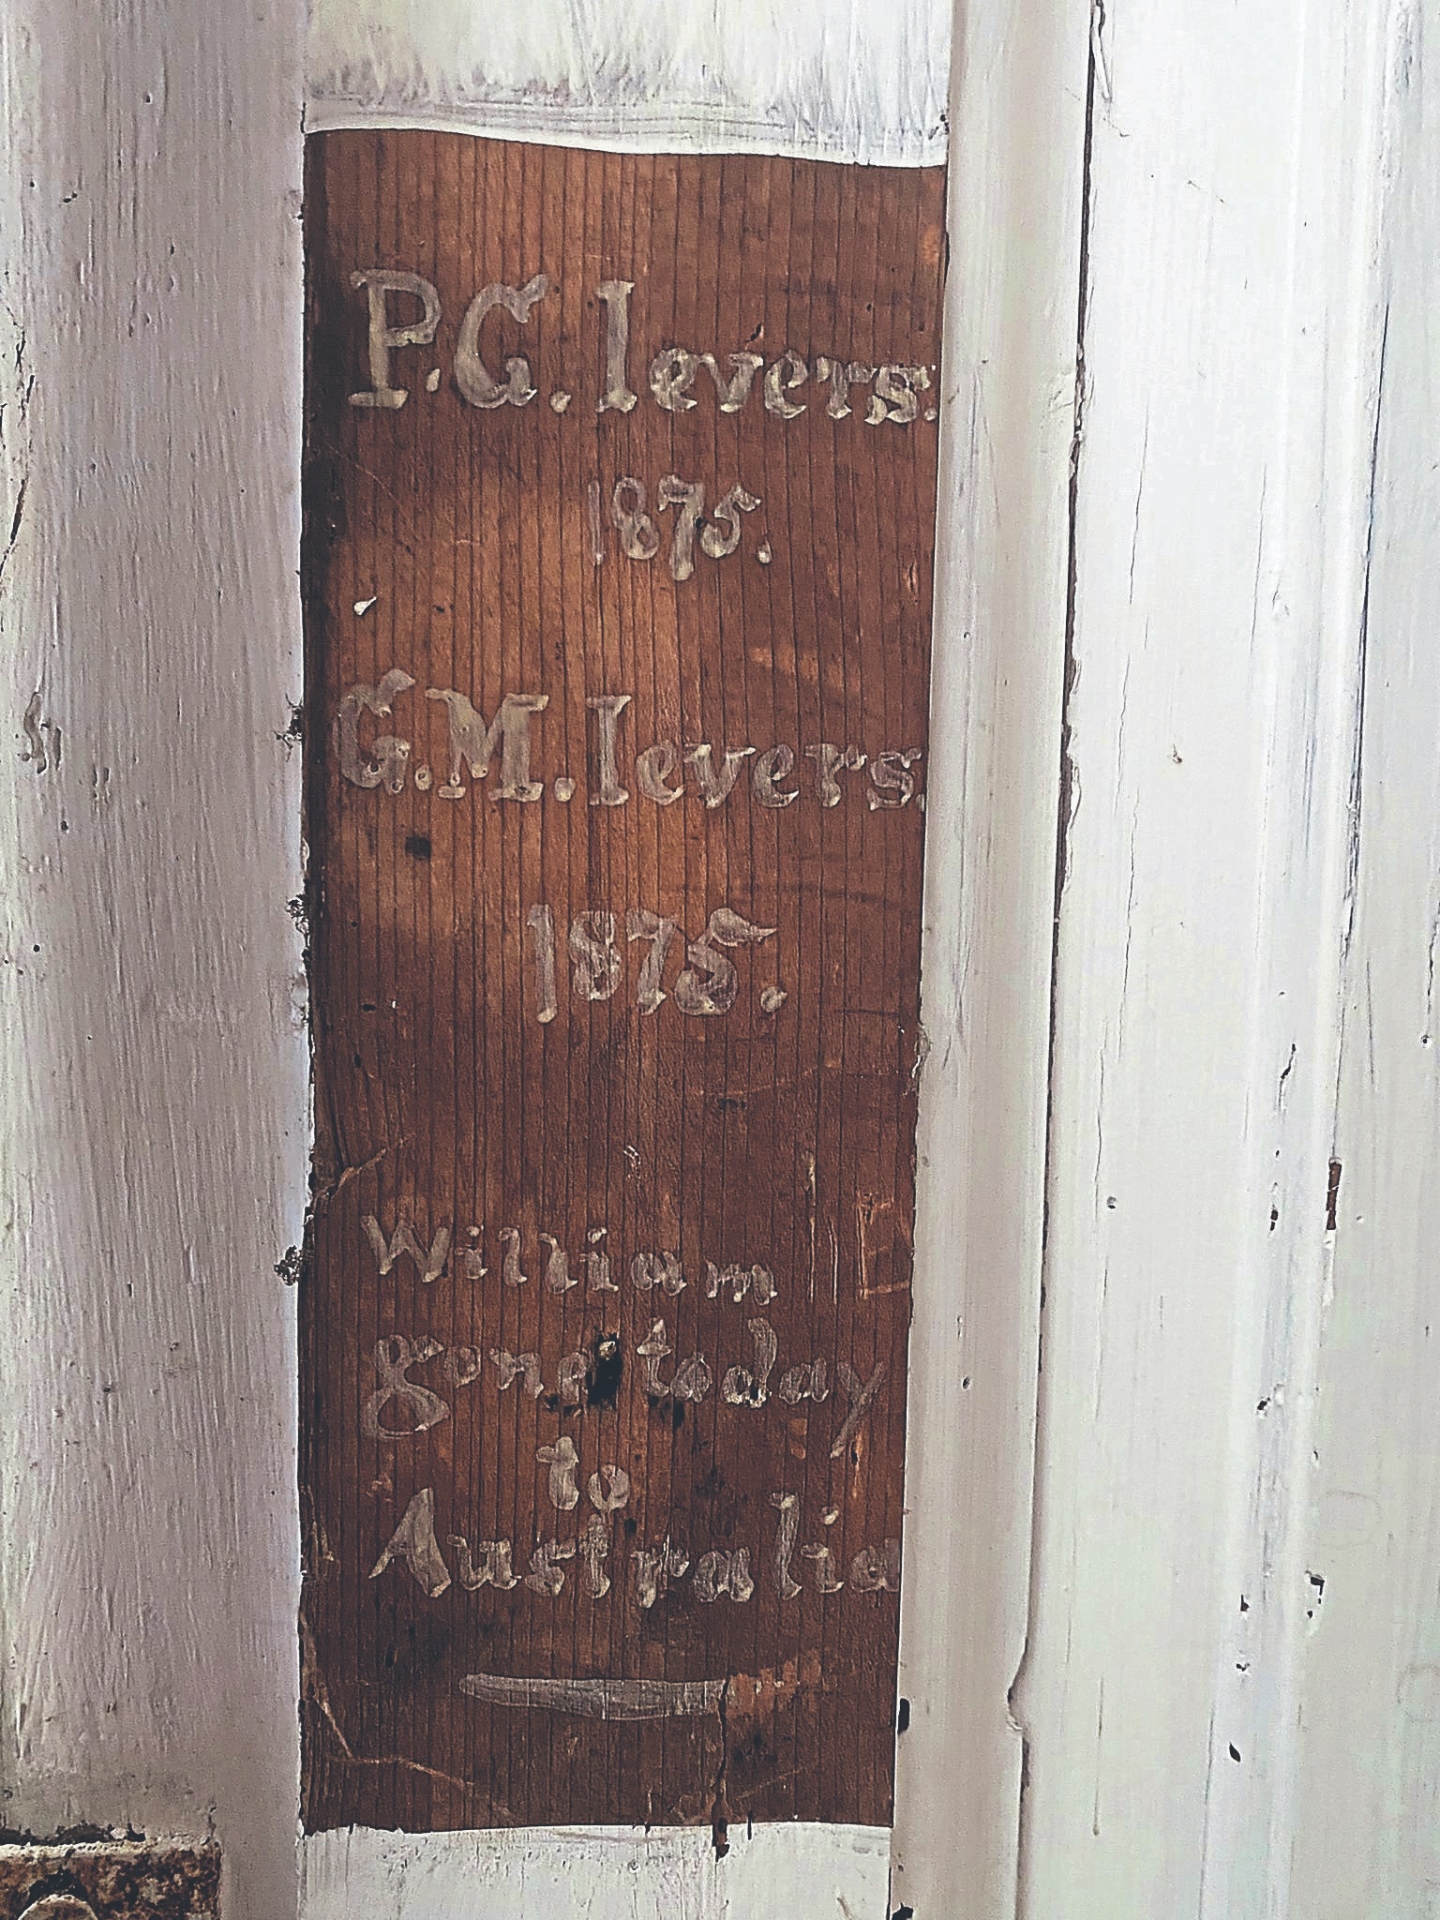 P.G. Ievers.
1875.
G.M. Ievers.
1875.
William
gone today
to
Australia